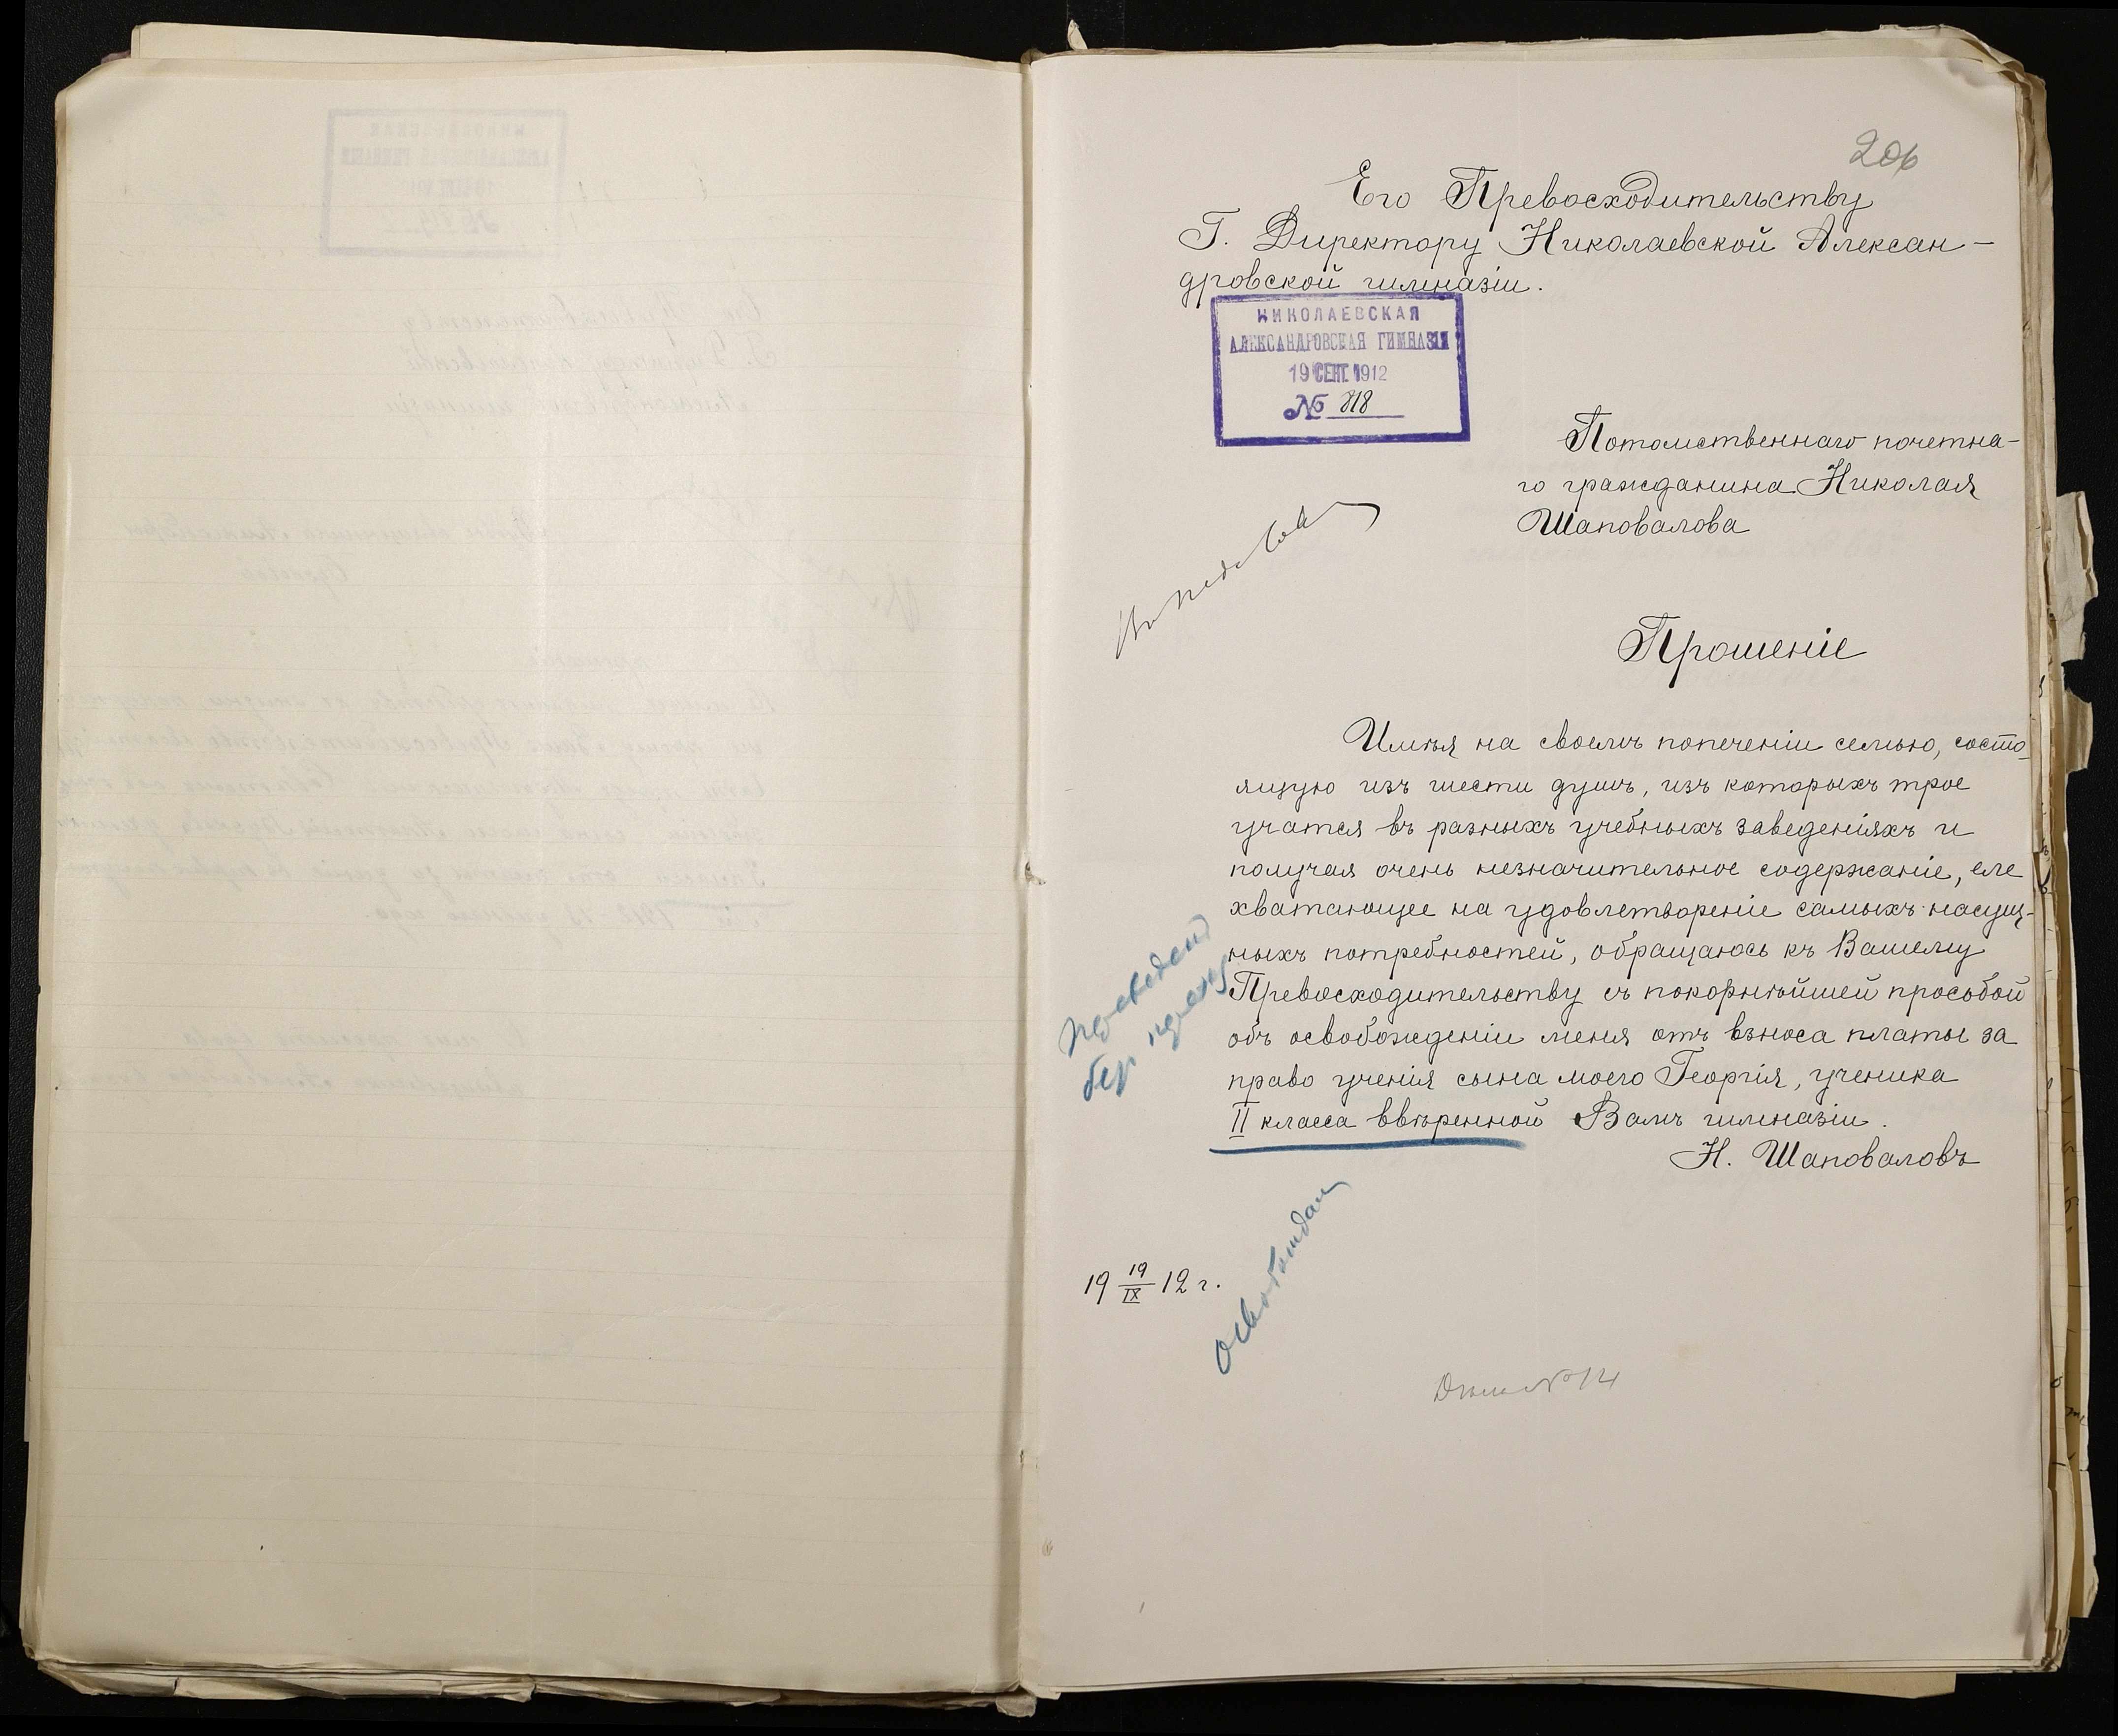 206
Его Превосходительству
Г. Директору Николаевской Алексан-
дровской гимназіи.
НИКОЛАЕВСКАЯ
АЛЕКСАНДРОВСКАЯ ГИМНАЗІЯ
19 СЕНТ. 1912
№ 818
Потомственнаго почетна-
го гражданина Николая
Шаповалова
Прошеніе
Имѣя на своемъ попеченіи семью, состо-
ящую изъ шести душъ, изъ которыхъ трое
учатся въ разныхъ учебныхъ заведеніяхъ и
получая очень незначительное содержаніе, еле
хватающее на удовлетвореніе самыхъ насущ-
ныхъ потребностей, обращаюсь къ Вашему
Превосходительству съ покорнѣйшей просьбой
объ освобожденіи меня отъ взноса платы за
право ученія сына моего Георгія, ученика
II класса ввѣренной Вамъ гимназіи.
Н. Шаповаловъ
19 19/IX 12 г.
Дѣло № 14